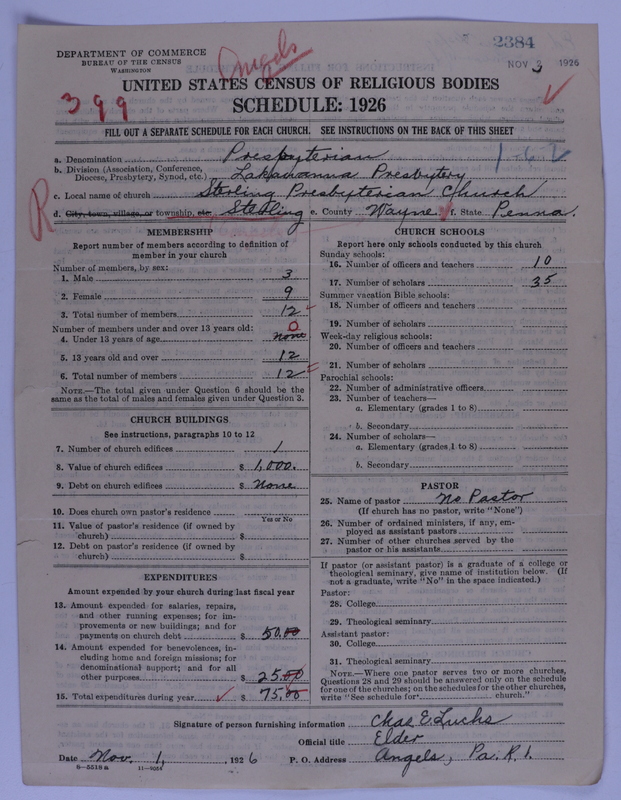 DEPARTMENT OF COMMERCE
BUREAU OF THE CENSUS
WASHINGTON
Angels
2384
NOV 3 1926
399
UNITED STATES CENSUS OF RELIGIOUS BODIES
SCHEDULE: 1926
FILL OUT A SEPARATE SCHEDULE FOR EACH CHURCH. SEE INSTRUCTIONS ON THE BACK OF THIS SHEET
a. Denomination Presbyterian
1-6-2
b. Division (Association, Conference, Diocese, Presbytery, Synod, etc.) Lakawanna Presbytery
c. Local name of church Sterling Presbyterian Church
R
d. City, town, village, or township, etc. Sterling e. County Wayne f. State Penna.
MEMBERSHIP
Report number of members according to definition of
member in your church
Number of members, by sex:
1. Male 3
2. Female 9
3. Total number of members 12
Number of members under and over 13 years old: 0
4. Under 13 years of age none
5. 13 years old and over 12
6. Total number of members 12
NOTE.—The total given under Question 6 should be
same as the total of males and females given under Question 3.
CHURCH BUILDINGS
See instructions, paragraphs 10 to 12
7. Number of church edifices 1
8. Value of church edifices $ 1,000.
9. Debt on church edifices $ None
10. Does church own pastor's residence
Yes or No
11. Value of pastor's residence (if owned by
church) $
12. Debt on pastor's residence (if owned by
church) $
EXPENDITURES
Amount expended by your church during last fiscal year
13. Amount expended for salaries, repairs,
and other running expenses; for im-
provements or new buildings; and for
payments on church debt $ 50.00
14. Amount expended for benevolences, in-
cluding home and foreign missions; for
denominational support; and for all
other purposes $ 25.00
15. Total expenditures during year $ 75.00
CHURCH SCHOOLS
Report here only schools conducted by this church
Sunday schools:
16. Number of officers and teachers 10
17. Number of scholars 35
Summer vacation Bible schools:
18. Number of officers and teachers
19. Number of scholars
Week-day religious schools:
20. Number of officers and teachers
21. Number of scholars
Parochial schools:
22. Number of administrative officers
23. Number of teachers—
a. Elementary (grades 1 to 8)
b. Secondary
24. Number of scholars—
a. Elementary (grades 1 to 8)
b. Secondary
PASTOR
25. Name of pastor No Pastor
(If church has no pastor, write "None")
26. Number of ordained ministers, if any, em-
ployed as assistant pastors
27. Number of other churches served by the
pastor or his assistants
If pastor (or assistant pastor) is a graduate of a college or
theological seminary, give name of institution below. (If
not a graduate, write "No" in the space indicated.)
Pastor:
28. College
29. Theological seminary
Assistant pastor:
30. College
31. Theological seminary
NOTE.—Where one pastor serves two or more churches,
Questions 28 and 29 should be answered only on the schedule
for one of the churches; on the schedules for the other churches,
write "See schedule for church."
Signature of person furnishing information Chas E. Luchs
Official title Elder
Date Nov. 1, 1926 P. O. Address Angels, Pa. R. 1.
8-5518a 11-9514